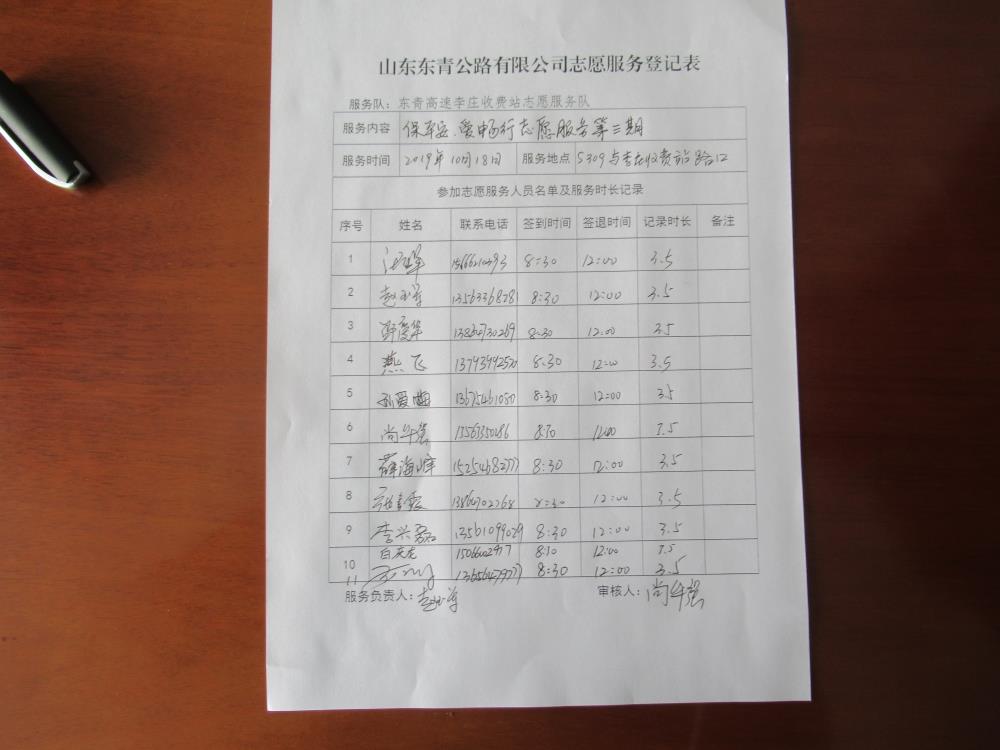 山东东青公路有限公司志愿服务登记表
服务队：东青高速李庄收费站志愿服务队
服务内容 保平安、爱畅行志愿服务第三期
服务时间 2019年10月18日 服务地点 S309与李庄收费站路口
参加志愿服务人员名单及服务时长记录
序号 姓名 联系电话 签到时间 签退时间 记录时长 备注
1 8:30 12:00 3.5
2 赵玉军 8:30 12:00 3.5
3 13864730269 8:30 12:00 3.5
4 燕飞 8:30 12:00 3.5
5 孙爱 13675461080 8:30 12:00 3.5
6 尚华强 8:30 12:00 3.5
7 薛海峰 15254682777 8:30 12:00 3.5
8 8:30 12:00 3.5
9 李兴磊 13561099029 8:30 12:00 3.5
10 8:30 12:00 3.5
11 8:30 12:00 3.5
服务负责人：赵玉军 审核人：尚华强